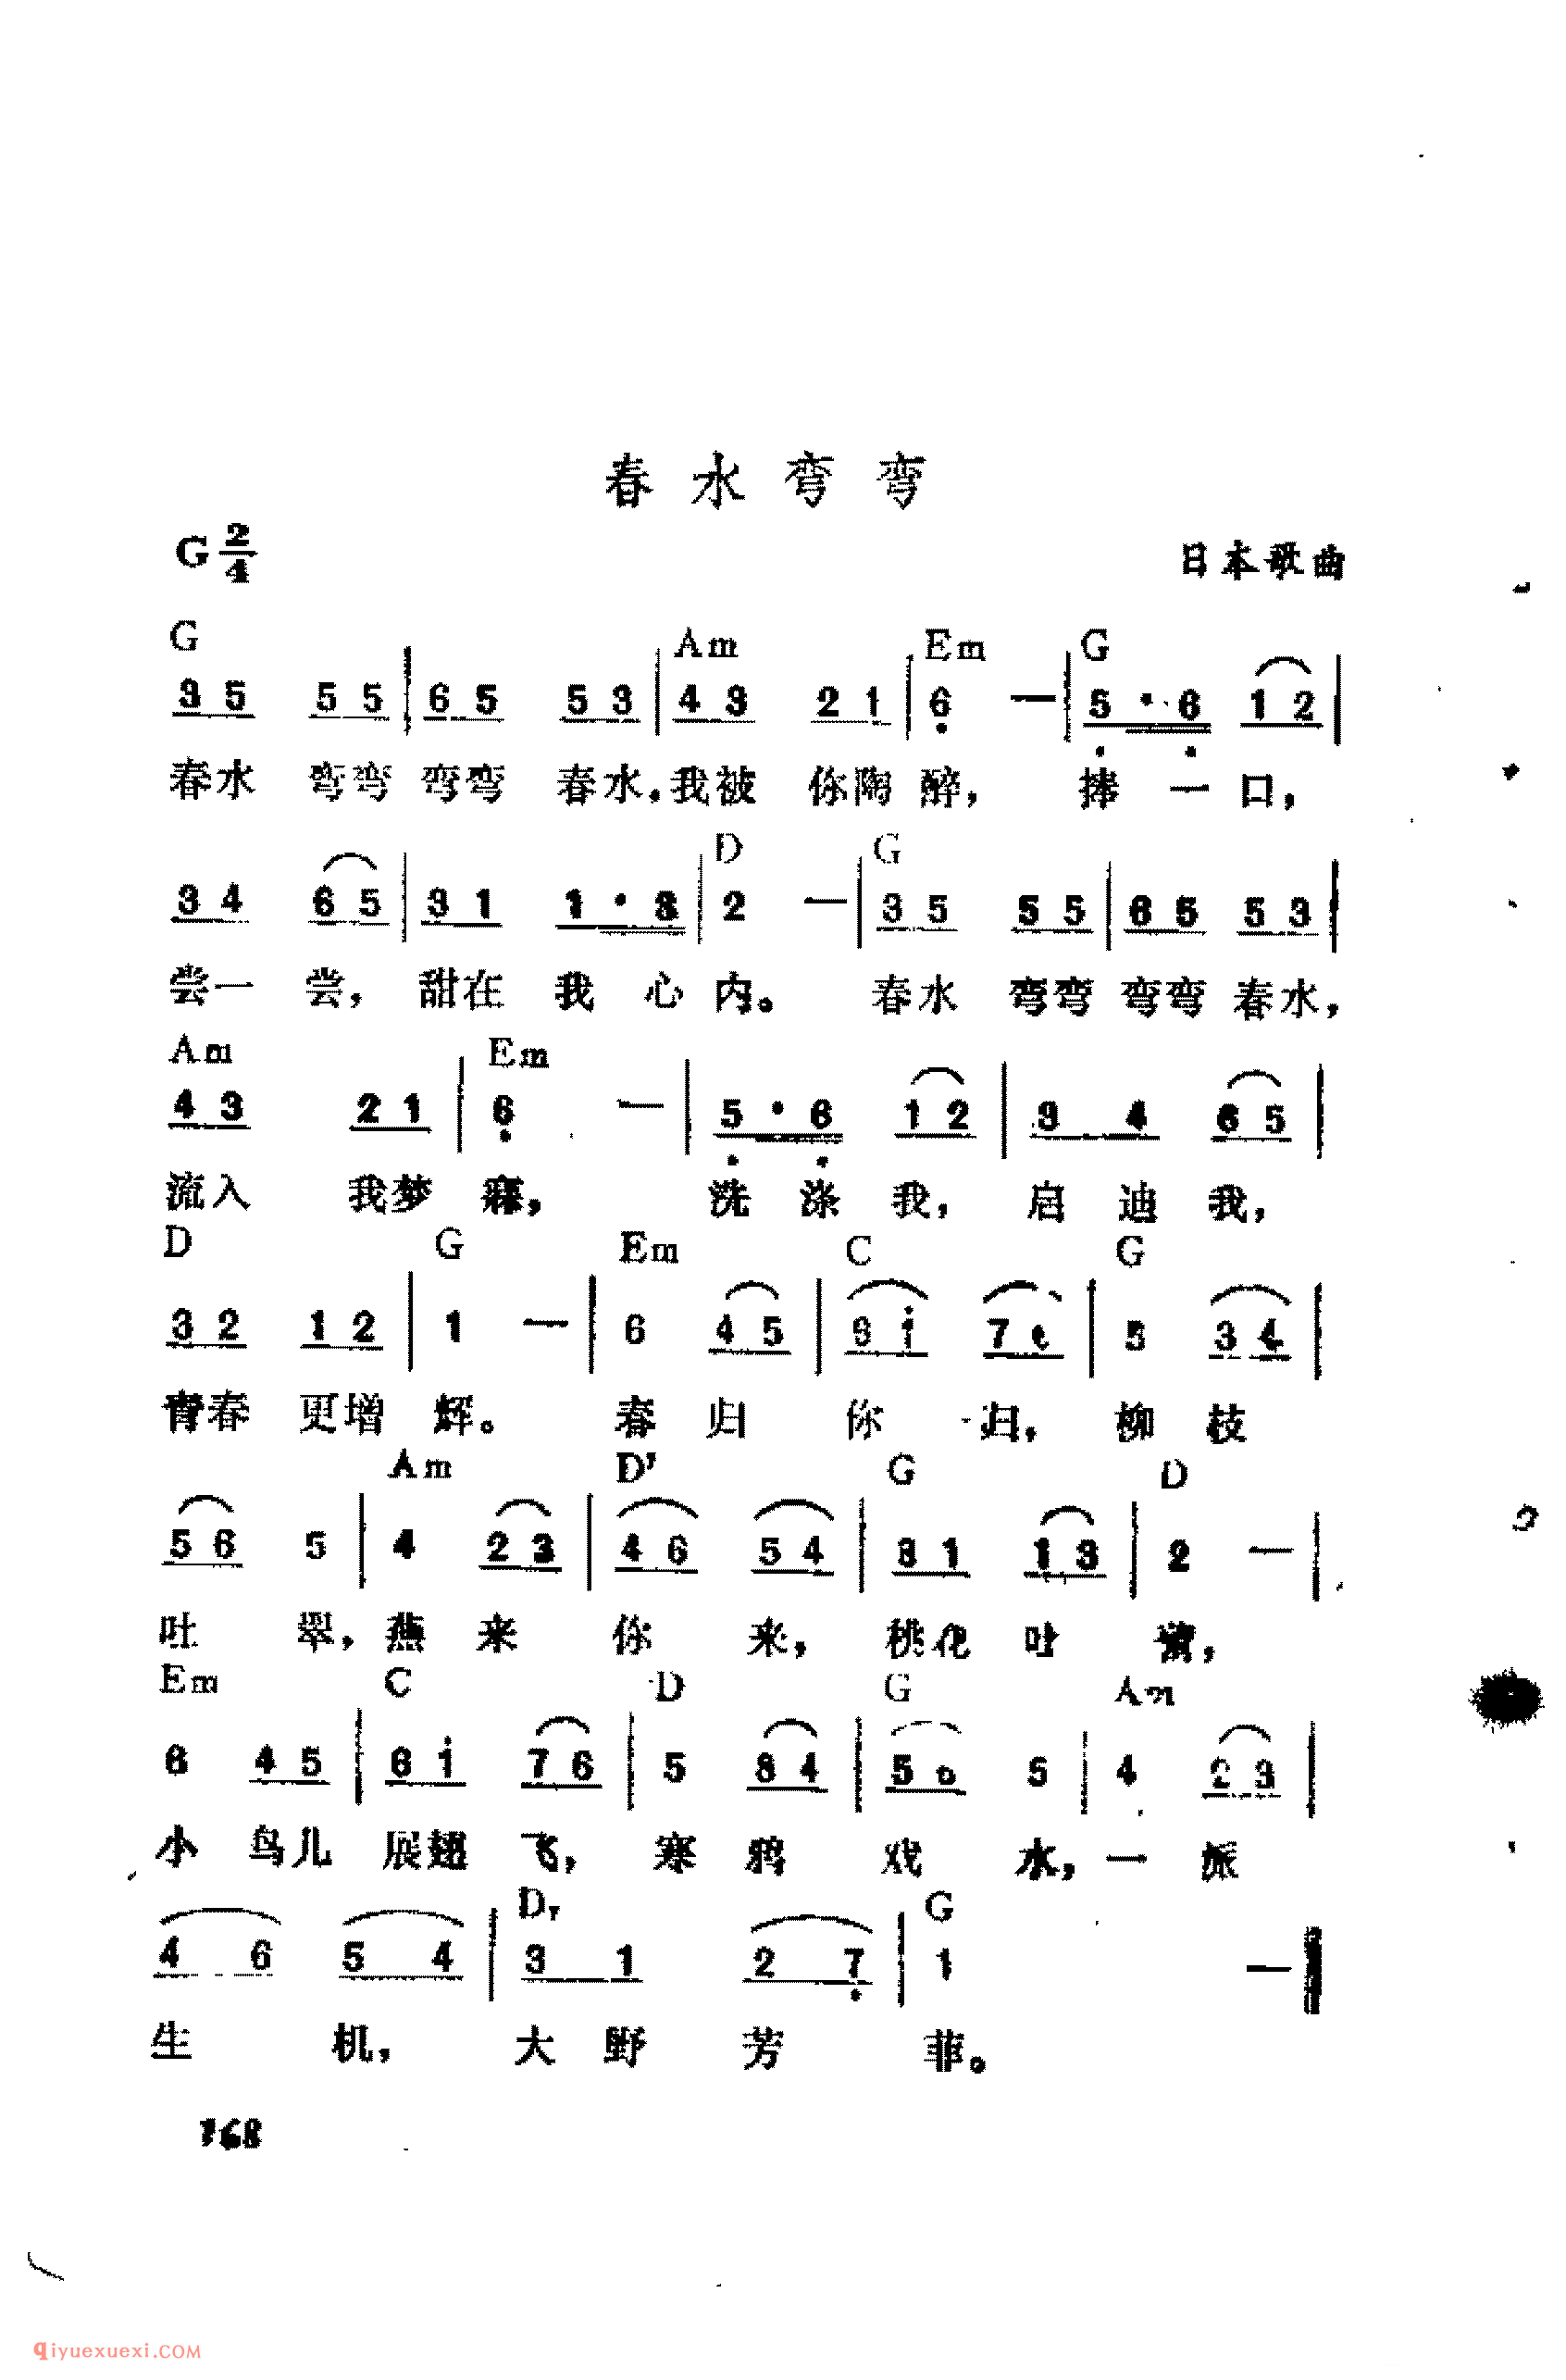 春水弯弯
G 2/4 日本歌曲
G Am Em G
3 5 5 5 | 6 5 5 3 | 4 3 2 1 | 6 — | 5 · 6 1 2 |
春水 弯弯 弯弯 春水，我被 你陶 醉， 捧 一 口，
D G
3 4 6 5 | 3 1 1 · 3 | 2 — | 3 5 5 5 | 6 5 5 3 |
尝一 尝，甜在 我 心 内。 春水 弯弯 弯弯 春水，
Am Em
4 3 2 1 | 6 — | 5 · 6 1 2 | 3 4 6 5 |
流入 我梦 寐， 洗 涤 我， 启 迪 我，
D G Em C G
3 2 1 2 | 1 — | 6 4 5 | 6 i 7 6 | 5 3 4 |
青春 更增 辉。 春 归 你 归， 柳 枝
Am D7 G D
5 6 5 | 4 2 3 | 4 6 5 4 | 3 1 1 3 | 2 — |
吐 翠，燕 来 你 来， 桃花 吐
Em C D G Am
6 4 5 | 6 i 7 6 | 5 3 4 | 5 6 5 | 4 2 3 |
小 鸟儿 展翅 飞， 寒 鸦 戏 水，一 派
D7 G
4 6 5 4 | 3 1 2 7 | 1 —
生 机， 大 野 芳 菲。
168
qiyuexuexi.COM